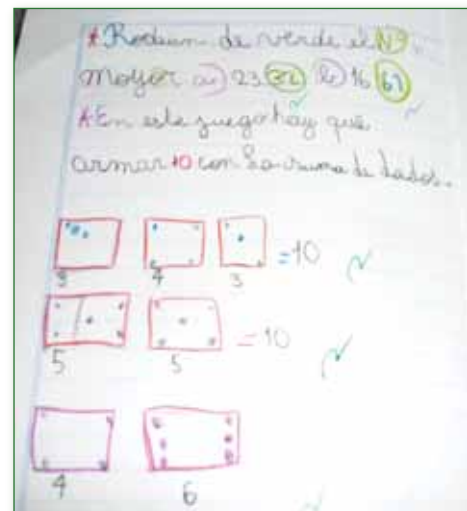 * Rodean de verde el Nº
mayor a) 23 32 b) 16 61
* En este juego hay que
armar 10 con la suma de dados.
3 4 3 =10
5 5 =10
4 6